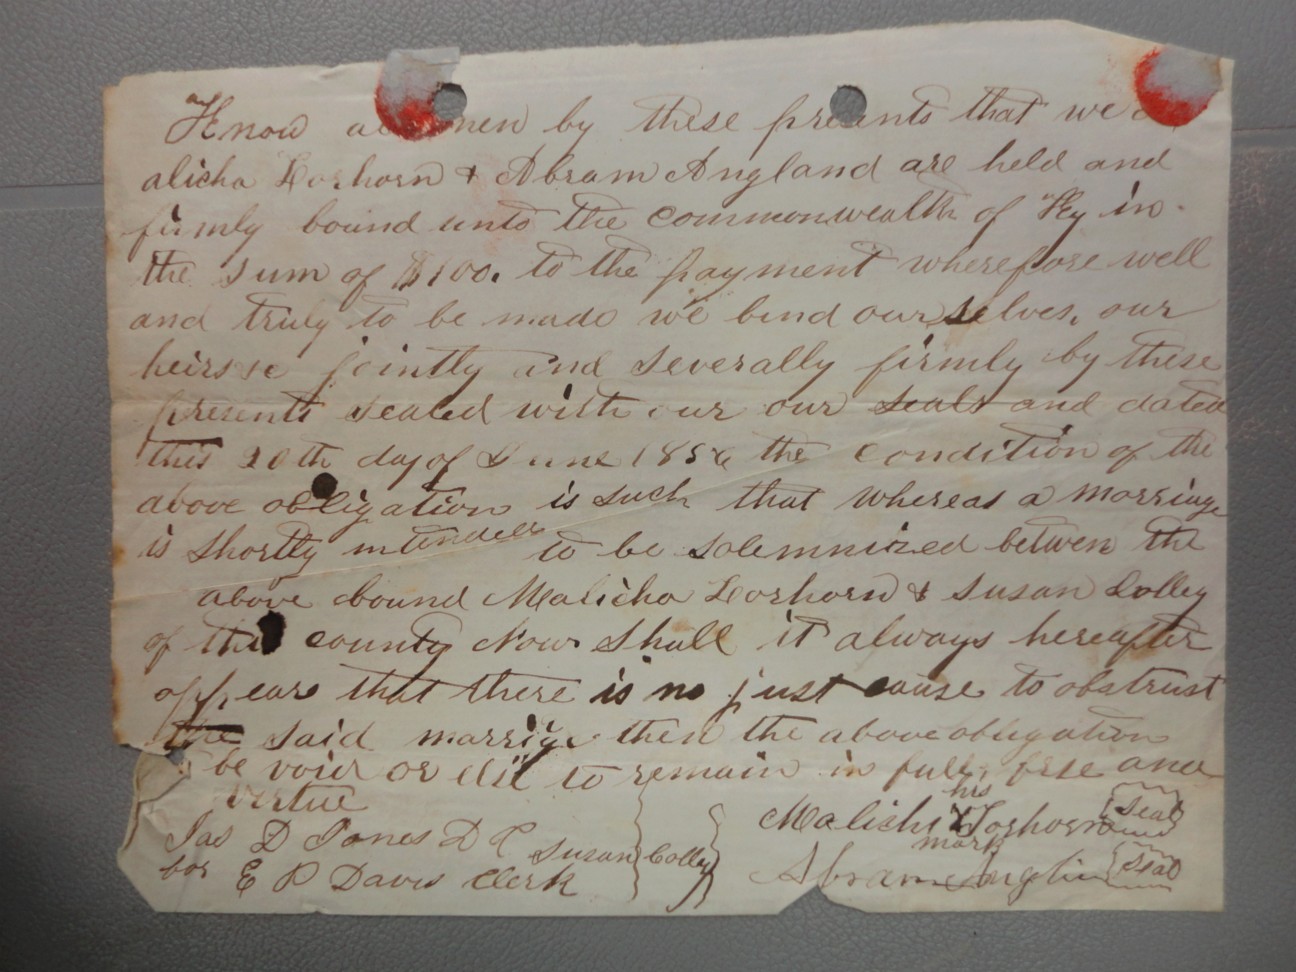 Know a men by these presents that we
alicha Forhorn & Abram Angland are held and
firmly bound unto the Commonwealth of Ky in
the sum of $100. to the payment wherefore well
and truly to be made we bind ourselves, our
heirs &c jointly and severally firmly by these
presents sealed with our our seals and dated
this 20th day of June 1856 the condition of the
above obligation is such that whereas a marriage
is shortly intended to be solemnized between the
above bound Malicha Forhorn & Susan Colley
of this county Now shall it always hereafter
appear that there is no just cause to obstrust
the said marrige then the above obligation
be void or else to remain in full, forse and
virtue
Jas D Jones D C
for E P Davis Clerk
Susan Colley
his
Malichi X Forhorn Seal
mark
Abram Anglin Seal